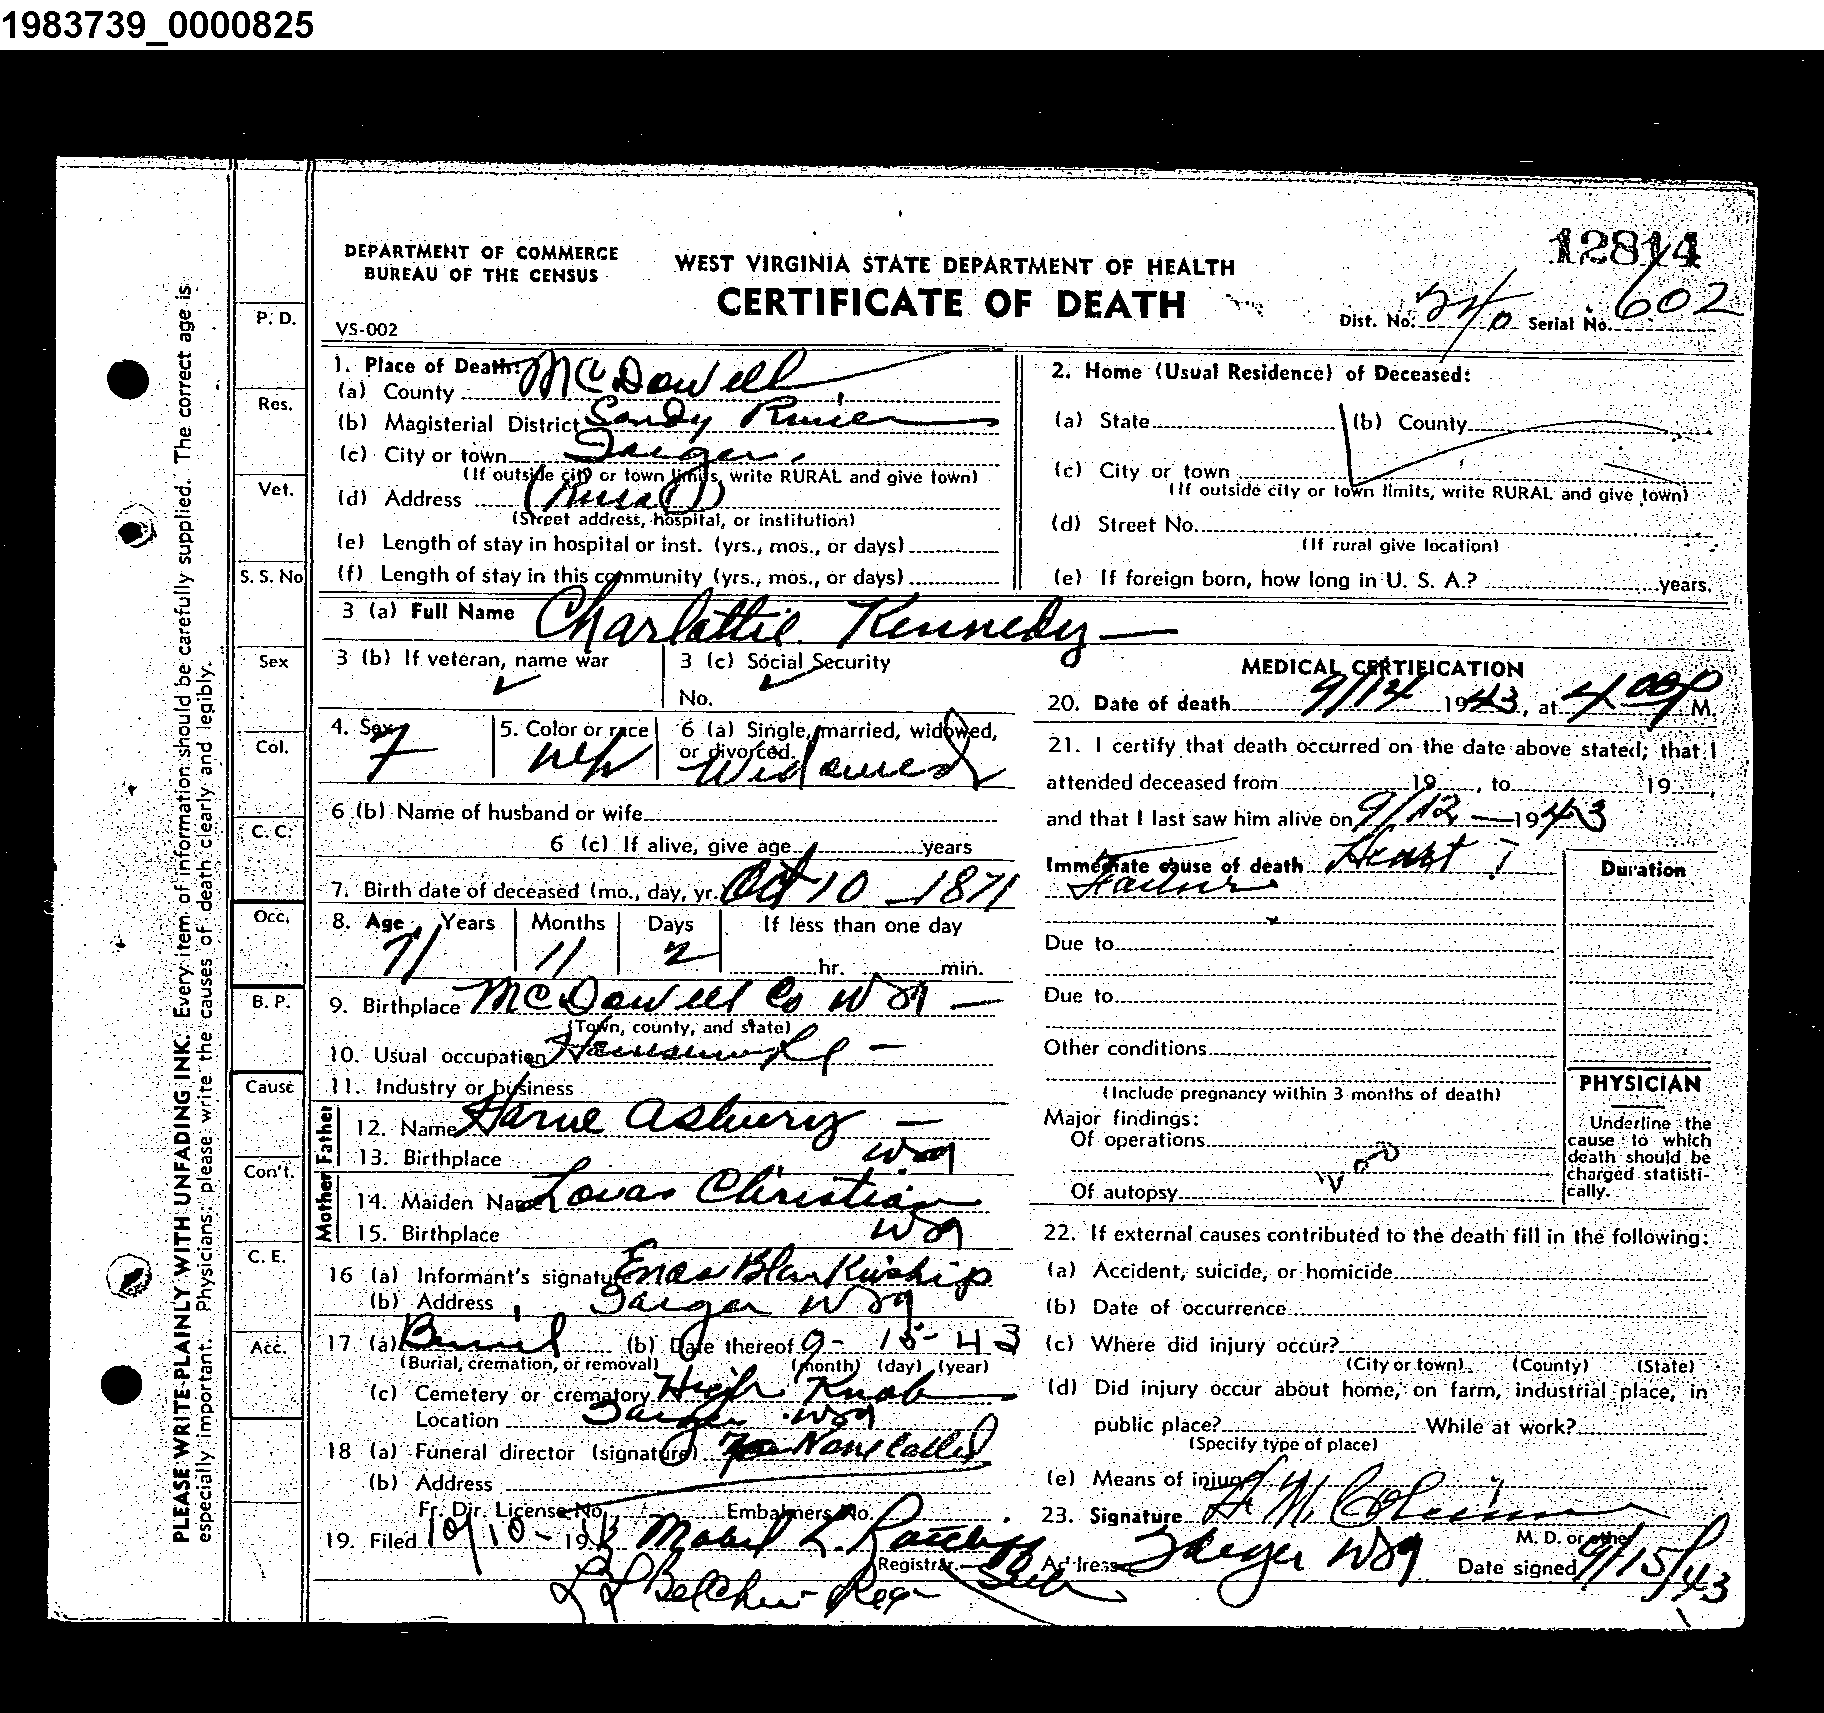 1983739_0000825
12814
DEPARTMENT OF COMMERCE
BUREAU OF THE CENSUS
WEST VIRGINIA STATE DEPARTMENT OF HEALTH
CERTIFICATE OF DEATH
VS-002
Dist. No. 240 Serial No. 602
PLEASE WRITE PLAINLY WITH UNFADING INK. Every item of information should be carefully supplied. The correct age is
especially important. Physicians: please write the causes of death clearly and legibly.
P. D.
Res.
Vet.
S. S. No
Sex
Col.
C. C.
Occ.
B. P.
Cause
Con't.
C. E.
Acc.
1. Place of Death:
(a) County McDowell
(b) Magisterial District Sandy River
(c) City or town Iaeger
(If outside city or town limits, write RURAL and give town)
(d) Address (Rural)
(Street address, hospital, or institution)
(e) Length of stay in hospital or inst. (yrs., mos., or days)
(f) Length of stay in this community (yrs., mos., or days)
2. Home (Usual Residence) of Deceased:
(a) State (b) County
(c) City or town
(If outside city or town limits, write RURAL and give town)
(d) Street No.
(If rural give location)
(e) If foreign born, how long in U. S. A.? years.
3 (a) Full Name Charlattie Kennedy
3 (b) If veteran, name war
3 (c) Social Security
No.
4. Sex F
5. Color or race wh
6 (a) Single, married, widowed,
or divorced Widowed
6 (b) Name of husband or wife
6 (c) If alive, give age years
7. Birth date of deceased (mo., day, yr. Oct 10 - 1871
8. Age Years Months Days If less than one day
71 11 2 hr. min.
9. Birthplace McDowell Co W Va
(Town, county, and state)
10. Usual occupation
11. Industry or business
Father
12. Name Asbury
13. Birthplace W Va
Mother
14. Maiden Name Christian
15. Birthplace W Va
16 (a) Informant's signature Enos Blankinship
(b) Address Iaeger W Va
17 (a) Burial (b) Date thereof 9-15-43
(Burial, cremation, or removal) (month) (day) (year)
(c) Cemetery or crematory High Knob
Location Iaeger W Va
18 (a) Funeral director (signature) No None Called
(b) Address
Fr. Dir. License No. Embalmers No.
19. Filed 10/10-1943 Mabel L. Ratcliff
Registrar
L L Belcher Reg
MEDICAL CERTIFICATION
20. Date of death 9/14 1943, at 4 00 P M.
21. I certify that death occurred on the date above stated; that I
attended deceased from 19 , to 19 ,
and that I last saw him alive on 9/12 - 1943
Immediate cause of death Heart
Failure
Duration
Due to
Due to
Other conditions
(Include pregnancy within 3 months of death)
Major findings:
Of operations
Of autopsy
PHYSICIAN
Underline the
cause to which
death should be
charged statisti-
cally.
22. If external causes contributed to the death fill in the following:
(a) Accident, suicide, or homicide
(b) Date of occurrence
(c) Where did injury occur?
(City or town) (County) (State)
(d) Did injury occur about home, on farm, industrial place, in
public place? While at work?
(Specify type of place)
(e) Means of injury
23. Signature
M. D. or other
Address Iaeger W Va Date signed 9/15/43